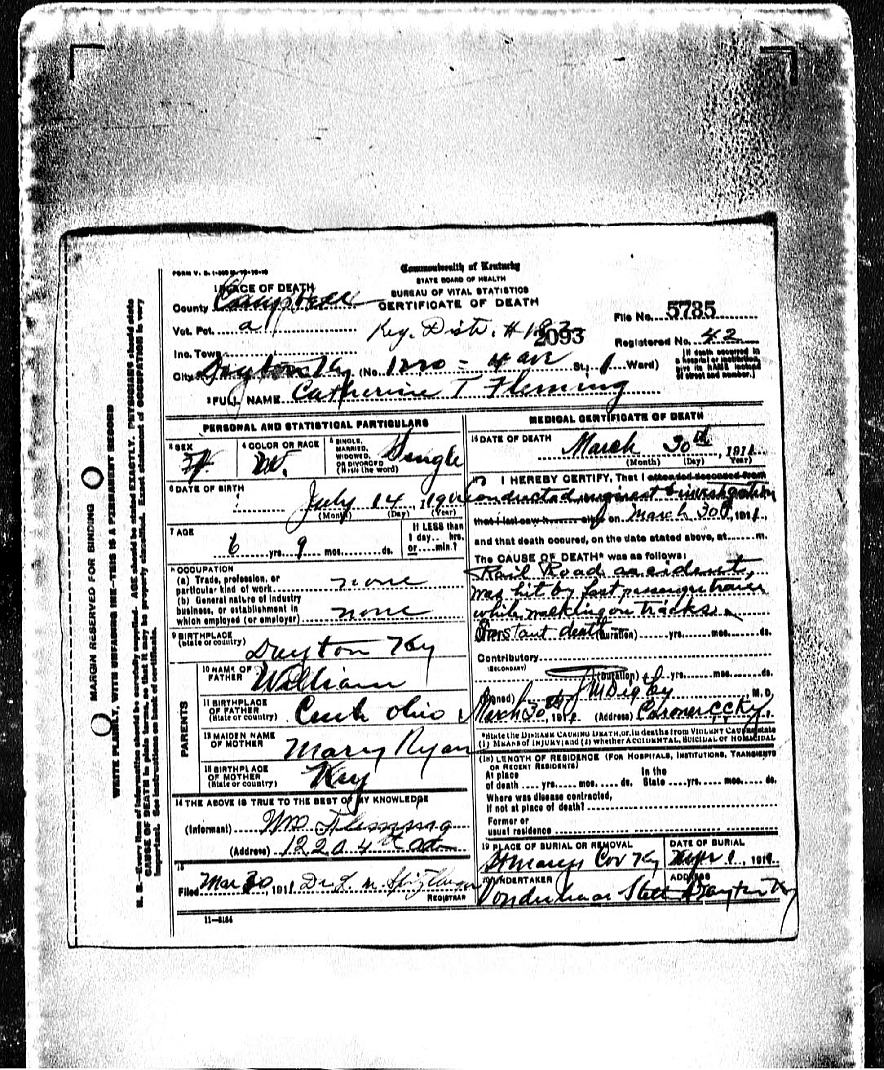 FORM V. S. 1-
Commonwealth of Kentucky
STATE BOARD OF HEALTH
BUREAU OF VITAL STATISTICS
CERTIFICATE OF DEATH
1 PLACE OF DEATH
County Campbell
Vot. Pct. a
Inc. Town
City Dayton Ky (No. 1220 - 4 ave St., 1 Ward)
Reg. Distr. #
2093
File No. 5785
Registered No. 42
[If death occurred in a hospital or institution, give its NAME instead of street and number.]
2 FULL NAME Catherine T Fleming
PERSONAL AND STATISTICAL PARTICULARS
3 SEX F
4 COLOR OR RACE W.
5 SINGLE, MARRIED, WIDOWED, OR DIVORCED (Write the word) Single
6 DATE OF BIRTH
July 14, 19
(Month) (Day) (Year)
7 AGE
6 yrs. 9 mos. ds.
If LESS than 1 day.. hrs. or....min.?
8 OCCUPATION
(a) Trade, profession, or particular kind of work none
(b) General nature of industry business, or establishment in which employed (or employer) none
9 BIRTHPLACE (State or country) Dayton Ky
PARENTS
10 NAME OF FATHER William
11 BIRTHPLACE OF FATHER (State or country) Ohio
12 MAIDEN NAME OF MOTHER Mary Ryan
13 BIRTHPLACE OF MOTHER (State or country) Key
14 THE ABOVE IS TRUE TO THE BEST OF MY KNOWLEDGE
(Informant) Wm Fleming
(Address) 1220 4th
15
Filed Mar 30, 1911 Dr. L. M.
REGISTRAR
11-5184
MEDICAL CERTIFICATE OF DEATH
16 DATE OF DEATH March 30th, 1911
(Month) (Day) (Year)
17 I HEREBY CERTIFY, That I attended deceased from
Conducted inquest & investigation
that I last saw h alive on March 30th, 1911,
and that death occured, on the date stated above, at m.
The CAUSE OF DEATH* was as follows:
Rail Road accident,
was hit by fast passenger train
while walking on tracks.
Instant death (Duration) yrs. mos. ds.
Contributory
(SECONDARY)
(Duration) yrs. mos. ds.
(Signed) J M Digby M. D.
March 30th, 1911 (Address) Coroner CC Ky
*State the DISEASE CAUSING DEATH, or, in deaths from VIOLENT CAUSES, state (1) MEANS OF INJURY; and (2) whether ACCIDENTAL, SUICIDAL OR HOMICIDAL
18 LENGTH OF RESIDENCE (FOR HOSPITALS, INSTITUTIONS, TRANSIENTS OR RECENT RESIDENTS)
At place of death yrs. mos. ds. In the State yrs. mos. ds.
Where was disease contracted, if not at place of death?
Former or usual residence
19 PLACE OF BURIAL OR REMOVAL
St Marys Cov Ky
DATE OF BURIAL
1, 1911
20 UNDERTAKER
ADDRESS
Dayton Ky
MARGIN RESERVED FOR BINDING
WRITE PLAINLY, WITH UNFADING INK—THIS IS A PERMANENT RECORD
N. B.—Every item of information should be carefully supplied. AGE should be stated EXACTLY. PHYSICIANS should state
CAUSE OF DEATH in plain terms, so that it may be properly classified. Exact statement of OCCUPATION is very
important. See instructions on back of certificate.